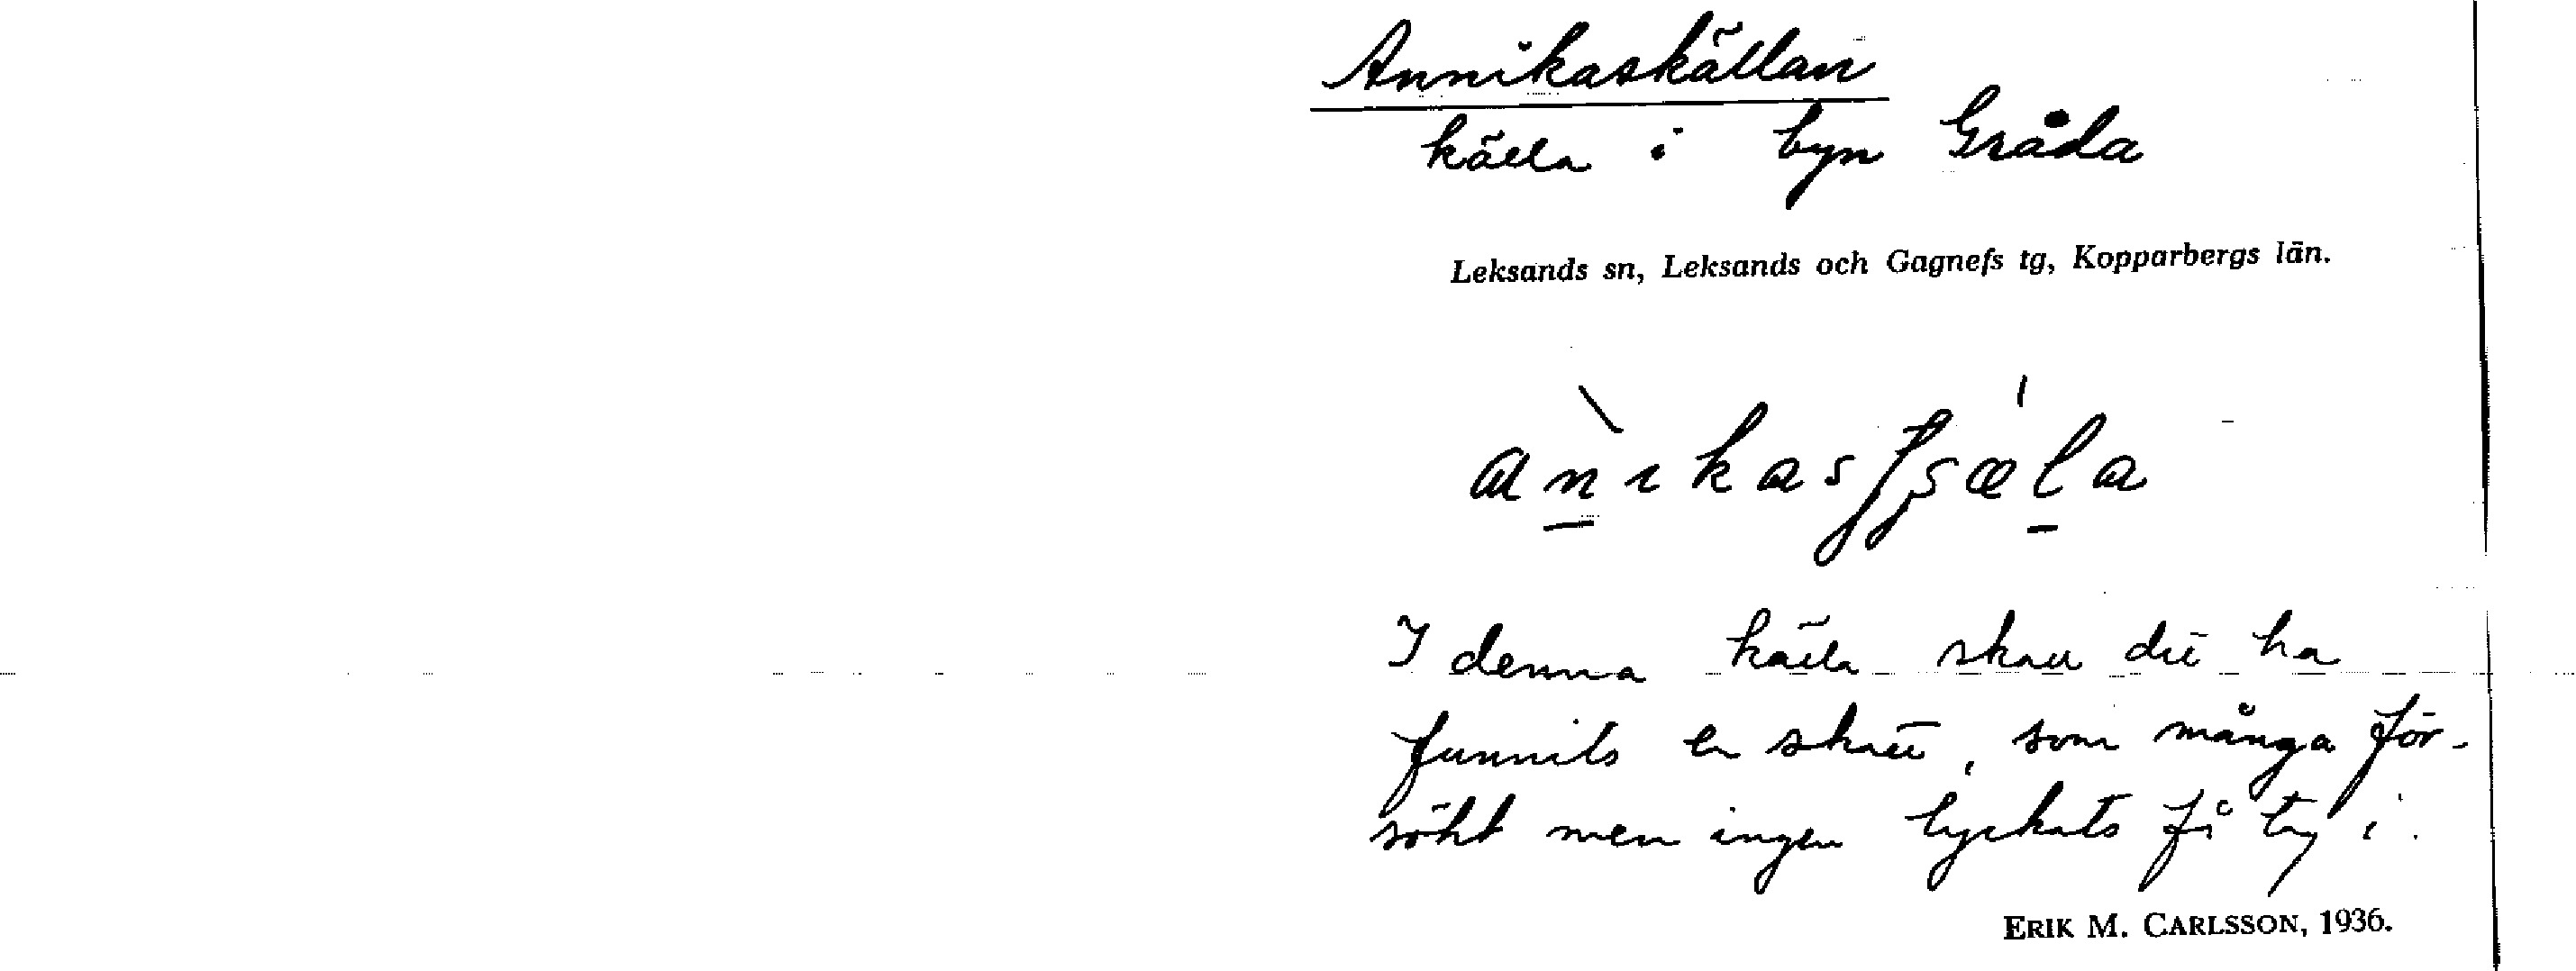 Annikaskällan
källa i byn Gråda
Leksands sn, Leksands och Gagnefs tg, Kopparbergs län.
I denna källa skall det ha
funnits en skatt, som många för-
sökt men ingen lyckats få tag i.
ERIK M. CARLSSON, 1936.